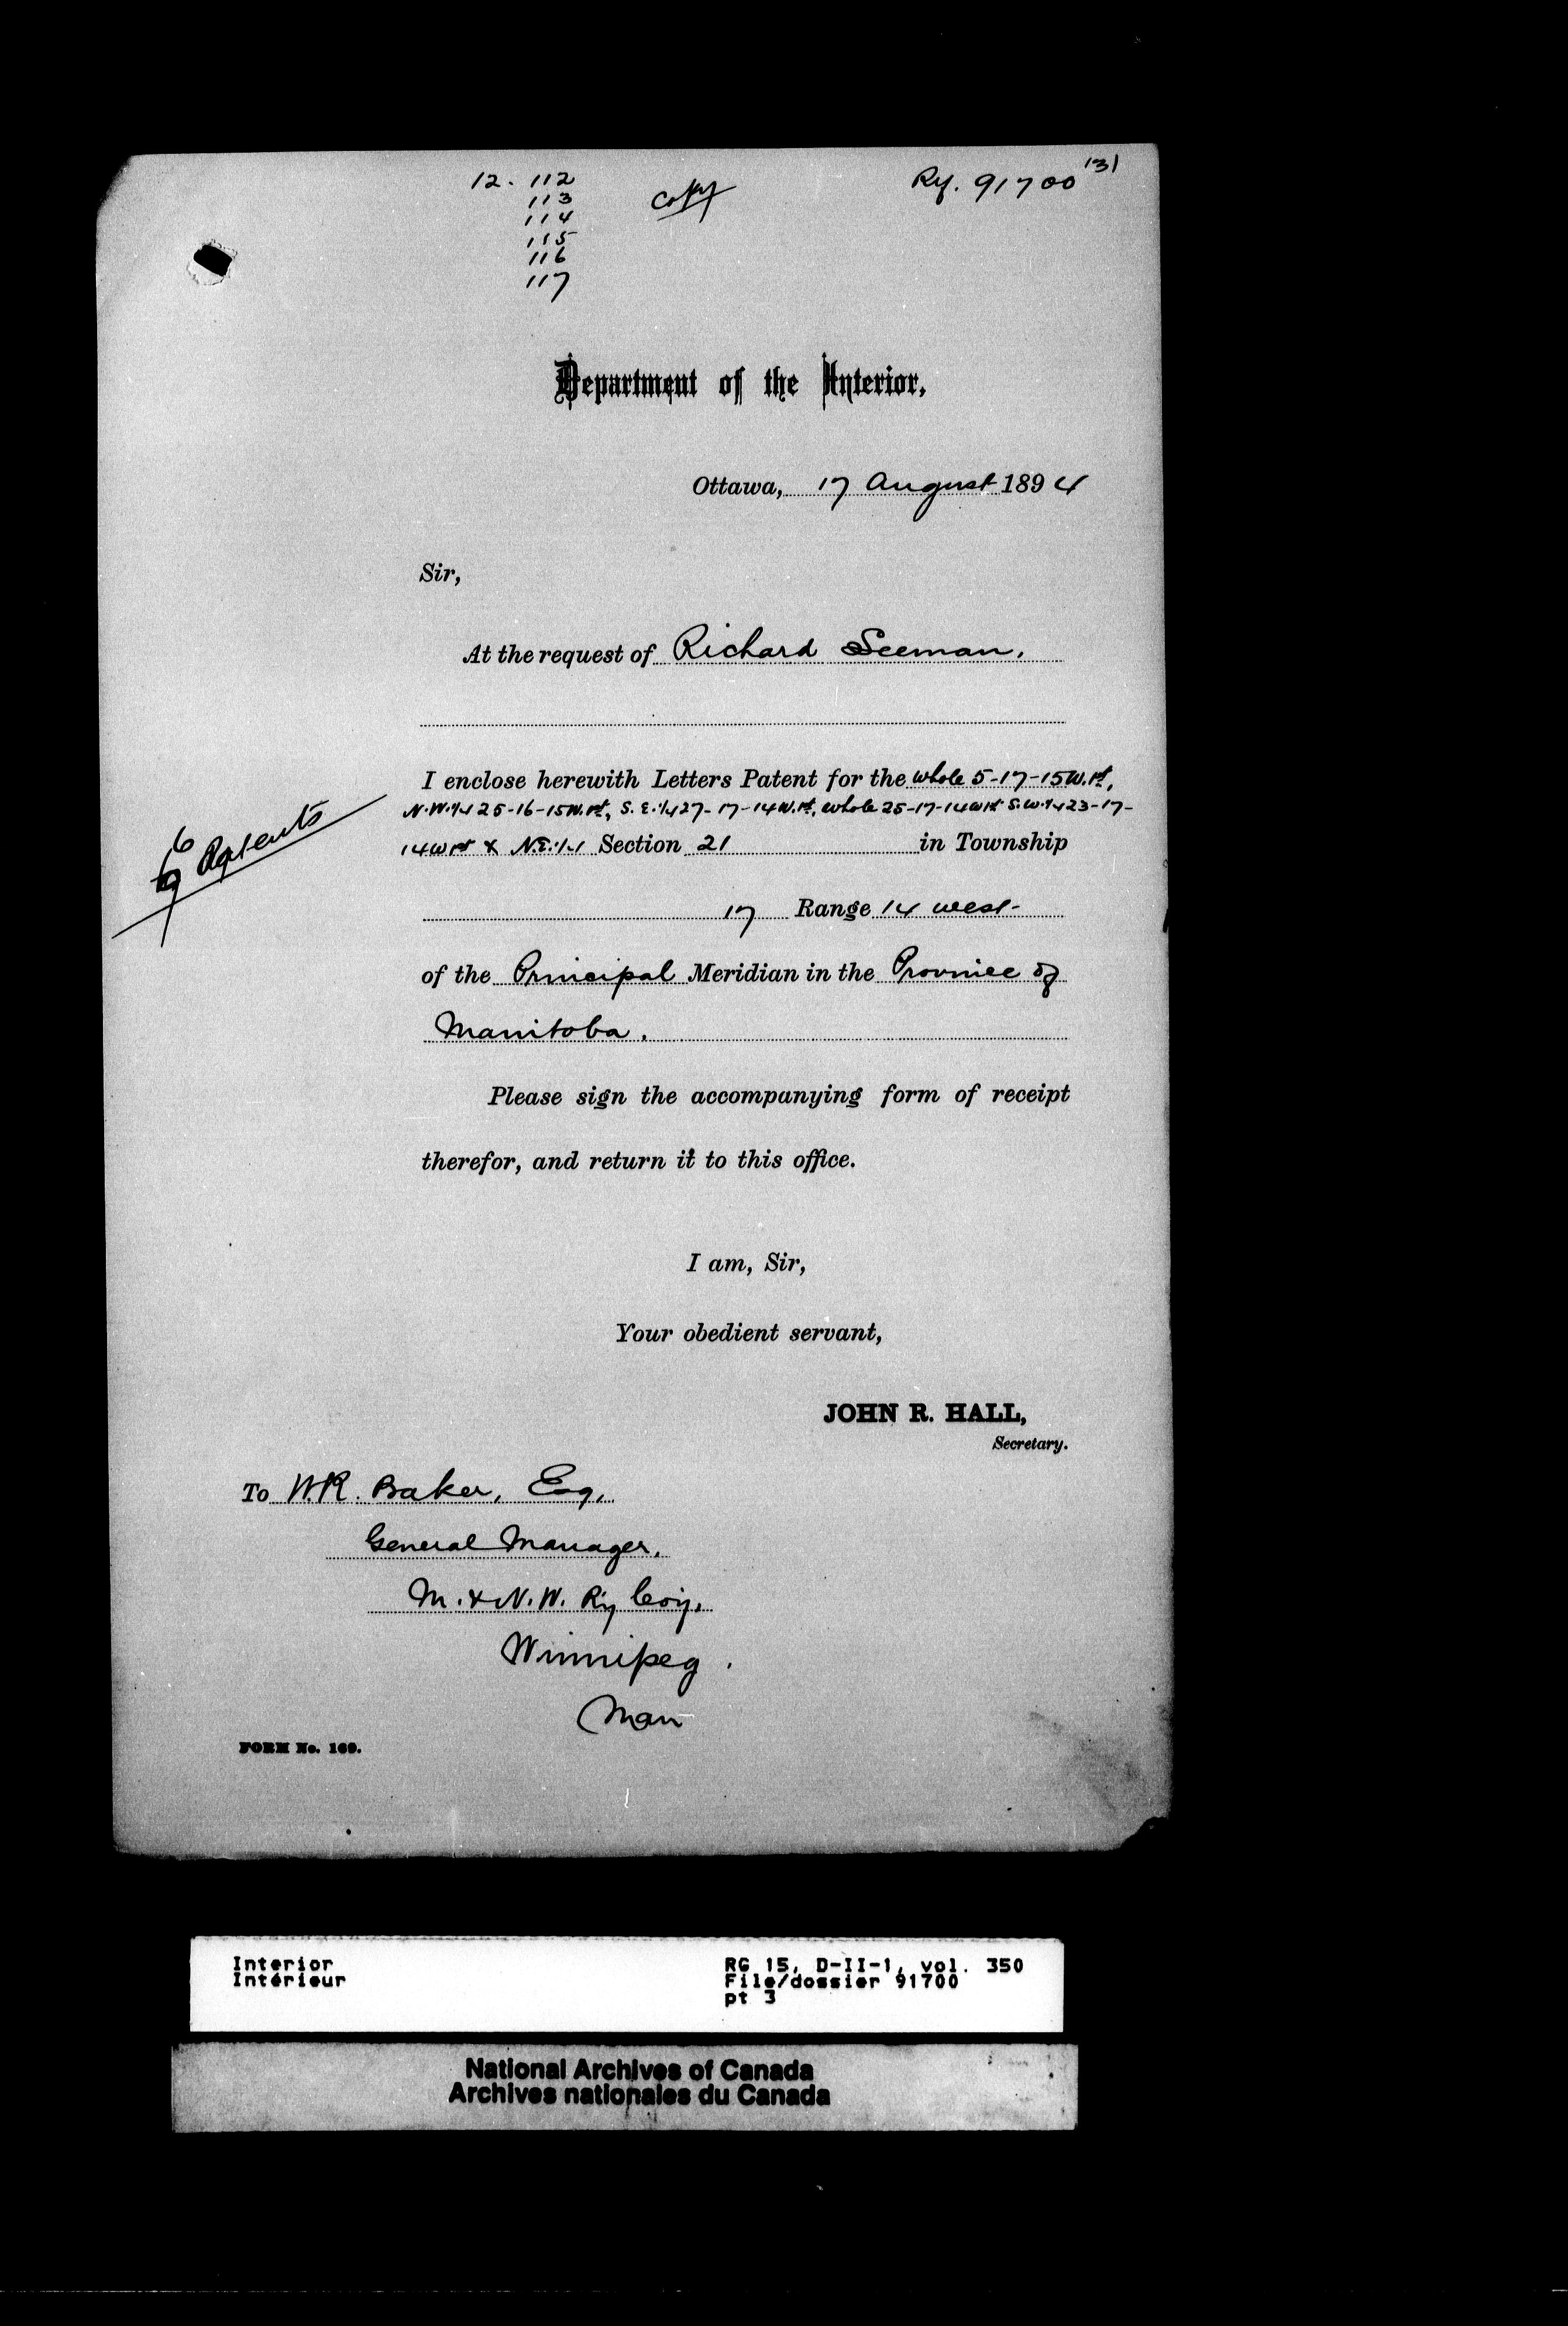 12. 112
113
114
115
116
117
Copy
Ry. 91700 131
Department of the Interior,
Ottawa, 17 August 1894
Sir,
At the request of Richard Seeman,
I enclose herewith Letters Patent for the whole 5-17-15W.1st,
N.W.1/4 25-16-15W.1st, S.E.1/4 27-17-14W.1st, whole 25-17-14W1st S.W.1/4 23-17-
14W1st & N.E.1/4 Section 21 in Township
17 Range 14 west
of the Principal Meridian in the Province of
Manitoba.
6 Patents
Please sign the accompanying form of receipt
therefor, and return it to this office.
I am, Sir,
Your obedient servant,
JOHN R. HALL,
Secretary.
To W.R. Baker, Esq,
General Manager,
M. & N. W. Ry Coy,
Winnipeg.
Man
FORM No. 169.
Interior
Intérieur
RG 15, D-II-1, vol. 350
File/dossier 91700
pt 3
National Archives of Canada
Archives nationales du Canada